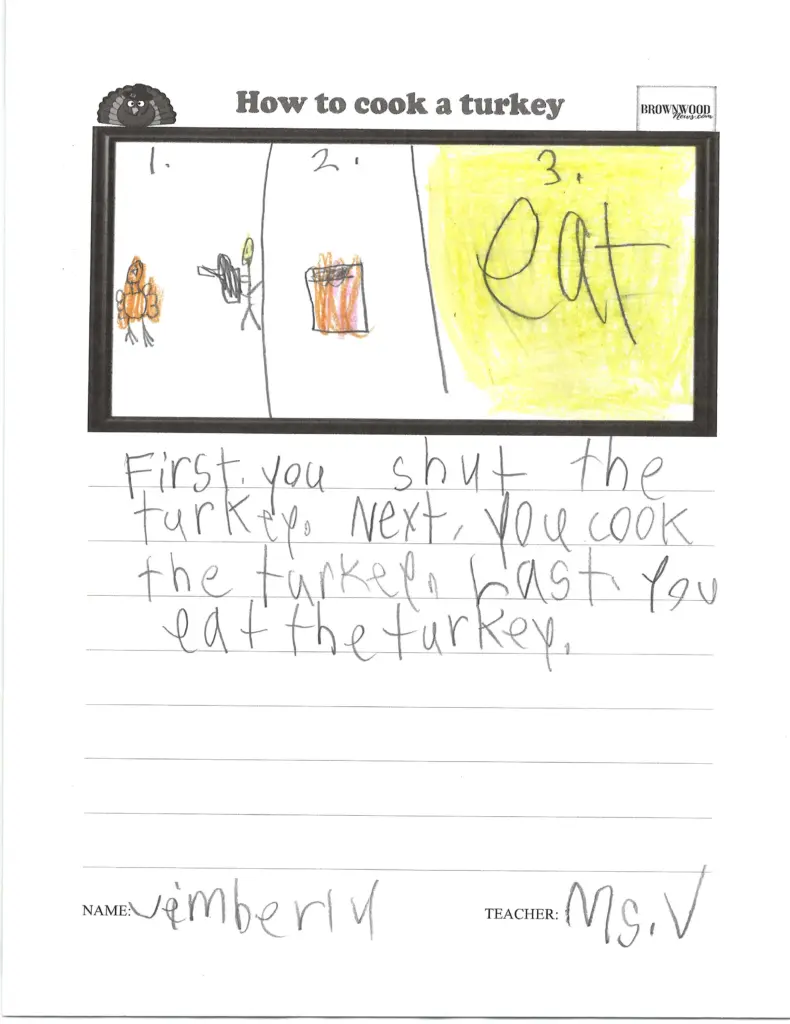 How to cook a turkey
BROWNWOOD
News.com
1.
2.
3.
eat
First, you shut the
turkey. Next, you cook
the turkey. Last you
eat the turkey.
NAME:
TEACHER: Ms. V